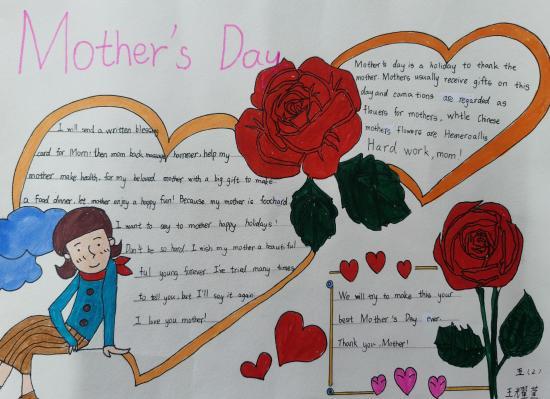 Mother's Day
Mother's day is a holiday to thank the
mother. Mothers usually receive gifts on this
day and carnations are regarded as
flowers for mothers, while Chinese
mothers flowers are Hemerocallis
Hard work, mom!
I will send a written blessing
card for Mom: then mom back massage hammer, help my
mother make health, for my beloved mother with a big gift to make
a food dinner, let mother enjoy a happy fun! Because my mother is
I want to say to mother happy holidays!
Don't be so hard. I wish my mother a beautiful
ful young forever. I've tried many times
to tell you, but I'll say it again,
I love you mother!
We will try to make this your
best Mother's Day ever.
Thank you, Mother!
五(2)
王耀萱